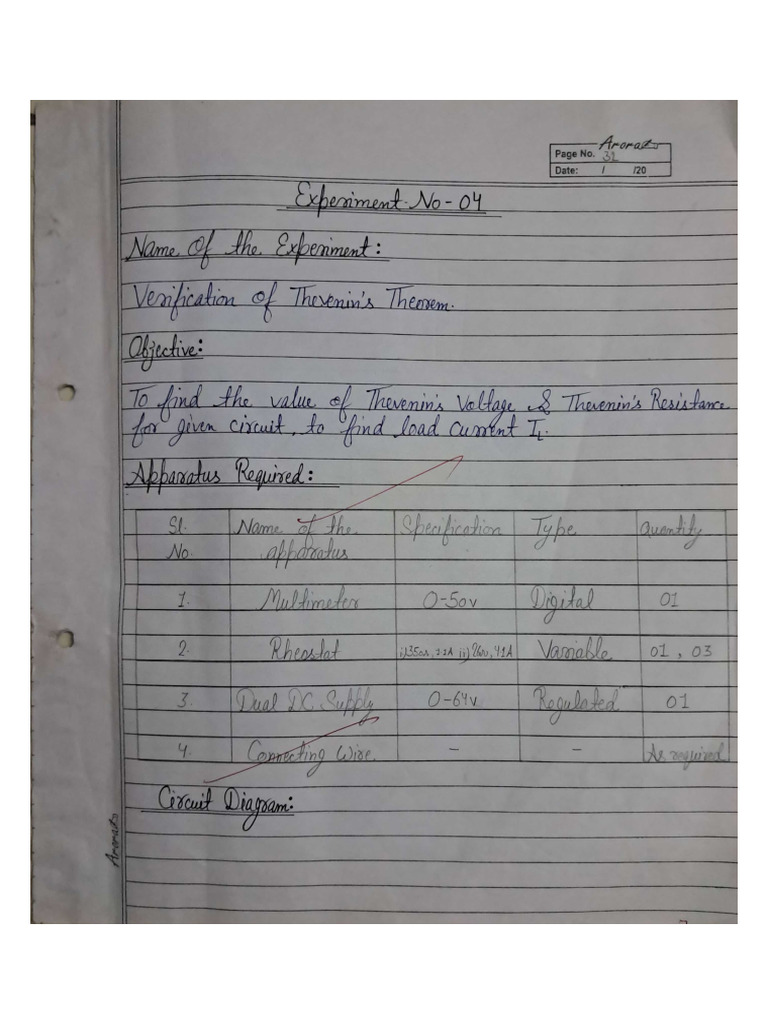 Page No. 31
Date: / /20
Experiment No - 04
Name Of the Experiment:
Verification of Thevenin's Theorem.
Objective:
To find the value of Thevenin's Voltage & Thevenin's Resistance
for given circuit, to find load current IL.
Apparatus Required:
Sl. No. Name of the apparatus Specification Type Quantity
1. Multimeter 0-50v Digital 01
2. Rheostat Variable 01, 03
3. Dual DC Supply 0-64v Regulated 01
4. Connecting Wire - - As required
Circuit Diagram: